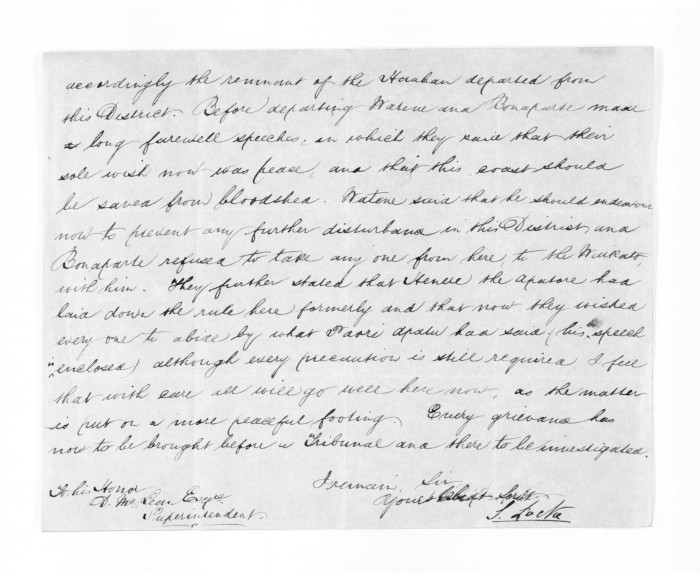 accordingly the remnant of the Hauhau departed from
this District. Before departing Watene and Bonaparte made
a long farewell speeches, in which they said that their
sole wish now was peace, and that this coast should
be saved from bloodshed. Watene said that he should endeavour
now to prevent any further disturbance in this District, and
Bonaparte refused to take any one from here, to the Waikato,
with him. They further stated that Henere the Apatore had
laid down the rule here formerly and that now they wished
every one to abide by what Paori Apatu had said (his speech
enclosed) although every precaution is still required, I feel
that with care all will go well here now, as the matter
is put on a more peaceful footing. Every grievance has
now to be brought before a Tribunal and there to be investigated.
I remain, Sir
Your Obedt Servt
S. Locke
To his Honor
D. McLean Esqre
Superintendent.